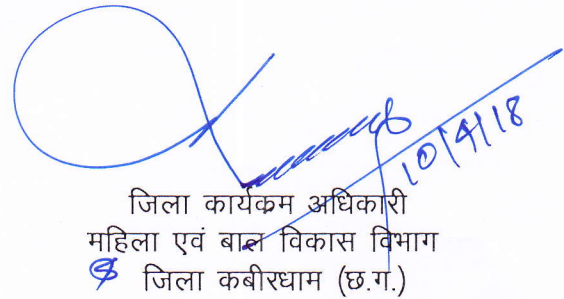 10/4/18
जिला कार्यक्रम अधिकारी
महिला एवं बाल विकास विभाग
जिला कबीरधाम (छ.ग.)